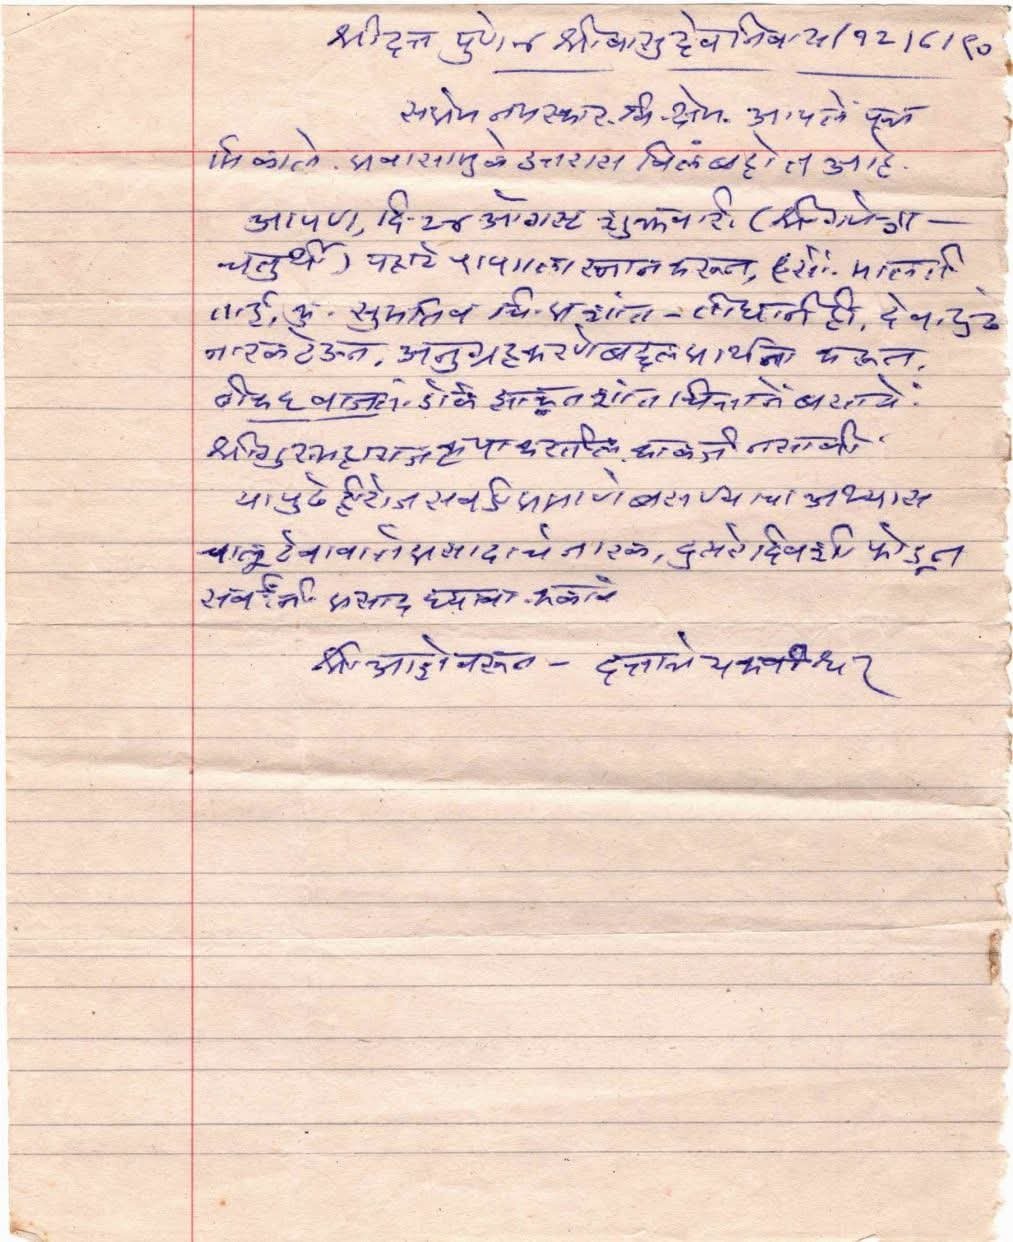 श्रीदत्त पुणे ४ श्रीवासुदेवनिवास/१२/८/९०
सप्रेम नमस्कार. वि. क्षेम. आपले पत्र
मिळाले. प्रवासामुळे उत्तरास विलंब होत आहे.
आपण, दि. २४ ऑगस्ट शुक्रवारी (श्रीगणेश —
चतुर्थी) पहाटे स्नान करून, सौ. मालती
ताई, कु. सुमति व चि. प्रशांत - तिघांनीही, देवापुढे
नारळ ठेऊन, अनुग्रह करणेबद्दल प्रार्थना करून,
डोळे झाकून शांत चित्ताने बसावे.
श्रीगुरुमहाराज कृपा करतील. काळजी नसावी
यापुढेही रोज सवडीप्रमाणे बसण्याचा अभ्यास
चालू ठेवावा ते प्रसादाचे नारळ, दुसरे दिवशी फोडून
सर्वांनी प्रसाद घ्यावा. कळावे
श्री. आज्ञेवरून - दत्तात्रेय कवीश्वर